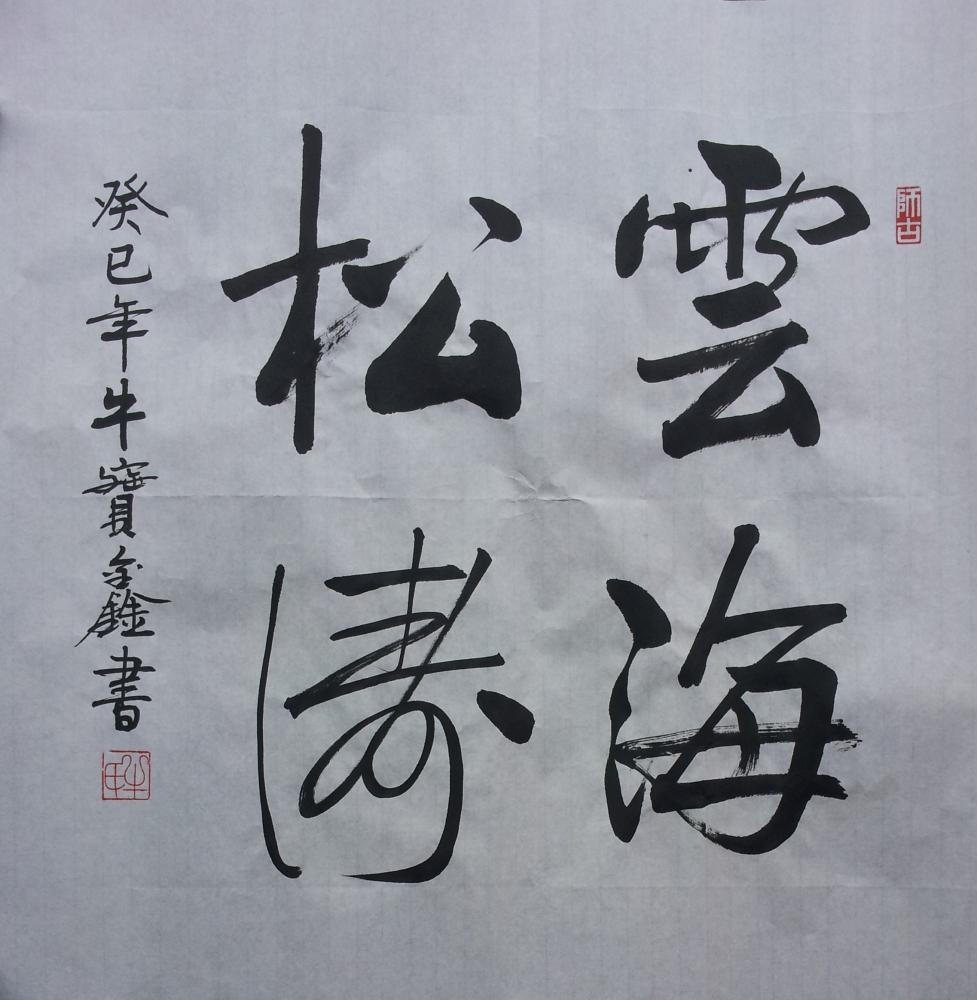 師古
雲海
松濤
癸巳年牛寶鑫書